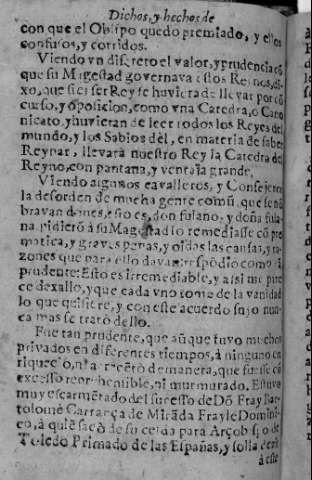 Dichos, y hechos de
con que el Obispo quedo premiado, y ellos
confusos, y corridos.
Viendo vn discreto el valor, y prudencia cõ
que su Magestad governava estos Reinos, di-
xo, que si el ser Rey se huviera de llevar por cõ
curso, y oposicion, como vna Catedra, o Cano
nicato, y huvieran de leer todos los Reyes del
mundo, y los Sabios dèl, en materia de saber
Reynar, llevarà nuestro Rey la Catedra del
Reyno, con pantana, y ventaja grande.
Viendo algunos cavalleros, y Consejeros
la desorden de mucha gente comũ, que se nõ
bravan dones, esto es, don fulano, y doña fula-
na, pidierõ à su Magestad lo remediasse cõ pre
matica, y graves penas, y oidas las causas, y ra-
zones que para ello davan: respõdio como
prudente: Esto es irremediable, y assi me pare
ce dexallo, y que cada vno tome de la vanidad
lo que quisiere, y con este acuerdo suyo nun-
ca mas se tratò dello.
Fue tan prudente, que aũ que tuvo muchos
privados en diferentes tiempos, à ninguno en
riquecio, ni acrecẽtò de manera, que fuesse cõ
excesso reprehensible, ni murmurado. Estuvo
muy escarmẽtado del sucesso de Dõ Fray Bar-
tolome Carrança de Mirãda Frayle Domini-
co, à quiẽ sacò de su celda para Arçobispo de
Toledo Primado de las Españas, y solia dezir
à este